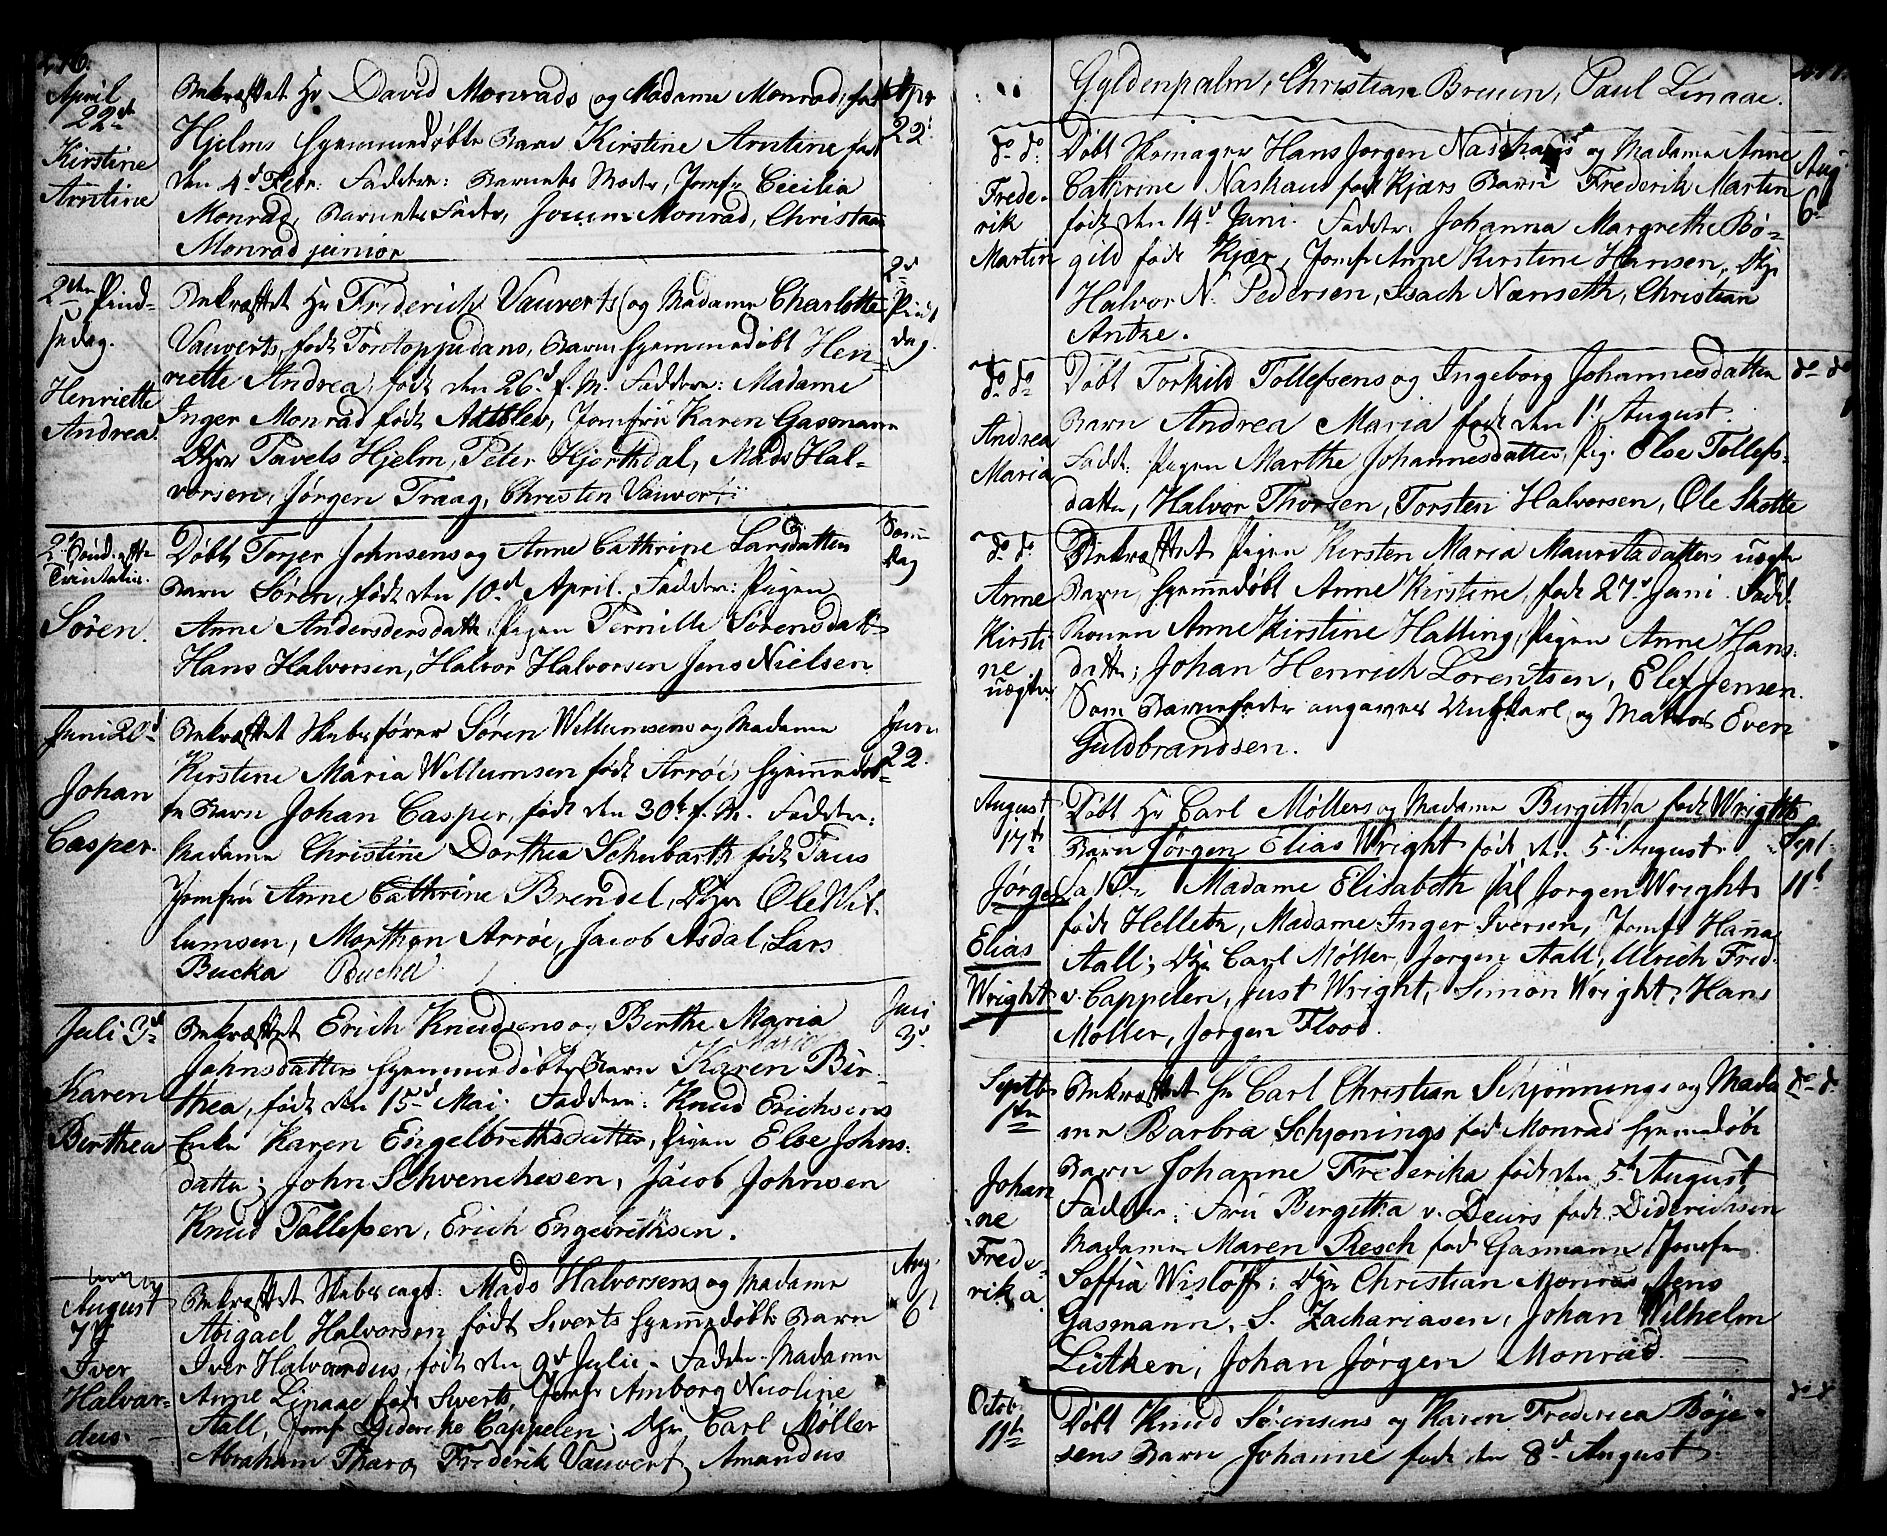 276.
April
22de
Kirstine
Arntine
Bekræftet Hr David Monrads og Madame Monrad, født
Hjelms hjemmedøbte Barn Kirstine Arntine født
den 4d Febr: Faddere: Barnets Moder, Jomfr Cicilia
Monrad, Barnets Fader, Jouum Monrad, Christian
Monrad junior
Apr
22d
2den Pind-
sedag.
Henriette
Andrea.
Bekræftet Hr Friderich Vauverts og Madame Charlotte
Vauverts, født Barn hjemmedøbt Hen-
riette Andrea, født den 26d f. M. Faddere: Madame
Inger Monrad født Adtslev, Jomfru Karen Gasmann
DHrr Pavels Hjelm, Peter Hjorthdal, Mads Hal-
vorsen, Jørgen Traag, Christen Vauvert
2d
Pints
dag.
2d Sönd. efter
Trinitatis.
Søren.
Døbt Torjer Johnsens og Anne Cathrine Larsdatters
Barn Søren, født den 10d April. Faddere: Pigen
Anne Andersdersdatter, Pigen Pernille Sørensdatter
Hans Halvorsen, Halvor Halvorsen Jens Nielsen
Samme
Dag
Juni 20d
Johan
Casper.
Bekræftet Skibsfører Søren Willumsens og Madame
Kirstine Maria Willumsen født Arröe, hjemmedøb-
te Barn Johan Casper, født den 30t f. M. Faddere:
Madame Christine Dorthea Schubarth født Taus
Jomfru Anne Cathrine Brendel, DHrr Ole Wil-
lumsen, Morthen Arröe, Jacob Asdal, Lars
Bucka Bucha
Jun.
22.
Juli 3d
Karen
Birthea
Bekræftet Erich Knudsens og Birthe Maria
Maria
Johnsdatters hjemmedøbte Barn Karen Bir-
thea, født den 15d Mai. Faddere: Knud Erichsens
Enke Karen Engelbrethsdatter, Pigen Else Johns-
datter; John Schvenchesen, Jacob Johnsen
Knud Tollefsen, Erich Engebrethsen.
Juli
3d
August
7d
Iver
Halvar-
dus.
Bekræftet Skibscapt: Mads Halvorsens og Madame
Abigael Halvorsen født Siverts hjemmedøbte Barn
Iver Halvardus, født den 9d Julii. Faddere. Madame
Anne Linaae født Siverts, Jomfr Amborg Nicoline
Aall, Jomf Diderike Cappelen; DHrr Carl Møller
Abraham Pharo Frederik Vauvert, Amandus
Aug.
6t
Gyldenpalm, Christian Bruun, Paul Linaae.
do do
Frede-
rik
Martin
Døbt Skomager Hans Jørgen Naschaus og Madame Anne
Cathrine Naskau født Kjærs Barn Frederik Martin
født den 14d Juni. Faddere: Johanna Margrethe Bø-
gild født Kjær, Jomfr Anne Kirstine Hansen, DHr
Halvor N. Pedersen, Isach Nænseth, Christian
Antze.
Aug
6d
do do
Andrea
Maria
Døbt Torkild Tollefsens og Ingeborg Johannesdatters
Barn Andrea Maria født den 1t August.
Fadd: Pigen Marthe Johannesdatter, Pig. Else Tollefs-
datter, Halvor Thorsen, Torsten Halvorsen, Ole Skotte
do do
do do
Anne
Kirsti
ne
uægte
Bekræftet Pigen Kirsten Maria Mauritzdatters uægte
Barn, hjemmedøbt Anne Kirstine, født 27d Juni. Fadd.
Konen Anne Kirstine Halling, Pigen Anne Hans-
datter; Johan Henrich Lorentsen, Elef Jensen.
Som Barnefader angaves Ungkarl og Matros Even
Guldbrandsen.
August
17de
Jørgen
Elias
Wright
Døbt Hr Carl Møllers og Madame Birgitha født Wrights
Barn Jørgen Elias Wright født den 5. August.
Fadd: Madame Elisabeth sal Jørgen Wright
født Helletz, Madame Inger Iversen, Jomfr Hanna
Aall; DHr Carl Møller, Jørgen Aall, Ulrich Fred.
v. Cappelen, Just Wright, Simon Wright, Hans
Møller, Jørgen Flood.
Sept
11t
Septbr
1ste
Johan
ne
Frede-
rika
Bekræftet Hr Carl Christian Schjønnings og Mada
me Barbra Schjonings født Monrad hjemmedøbt
Barn Johanne Frederika født den 5t August
Faddere: Fru Birgitha v. Deurs født Diderichsen
Madame Maren Resch født Gasmann, Jomfru
Soffia Wisløff: DHr Christian Monrad, Jens
Gasmann, S. Zachariasen, Johan Wilhelm
Lütken, Johan Jørgen Monrad.
do d
Octob.
11t
Døbt Knud Sørensens og Karen Frederica Böje-
sens Barn Johanne født den 8d August
do d